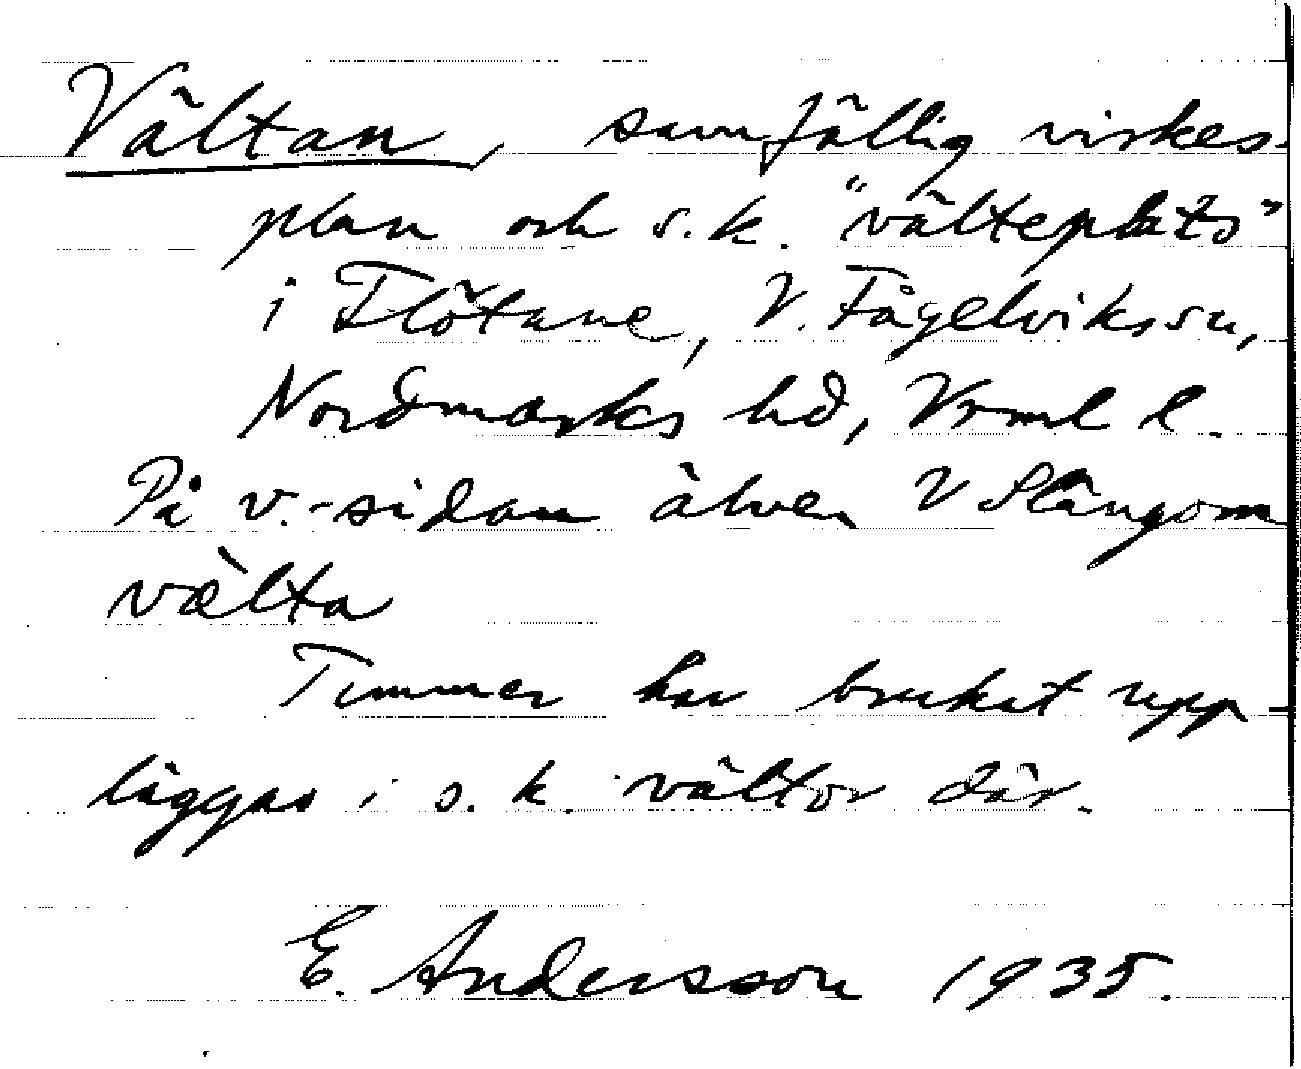 Vältan, samfällig virkes-
plan och s.k. "välteplats"
i Flötane, V. Fågelvikssn,
Nordmarks hd, Vrml l.
På v.-sidan älven V Slängom
vælta
Timmer har brukat upp-
läggas i s.k. vältor där.
E. Andersson 1935.